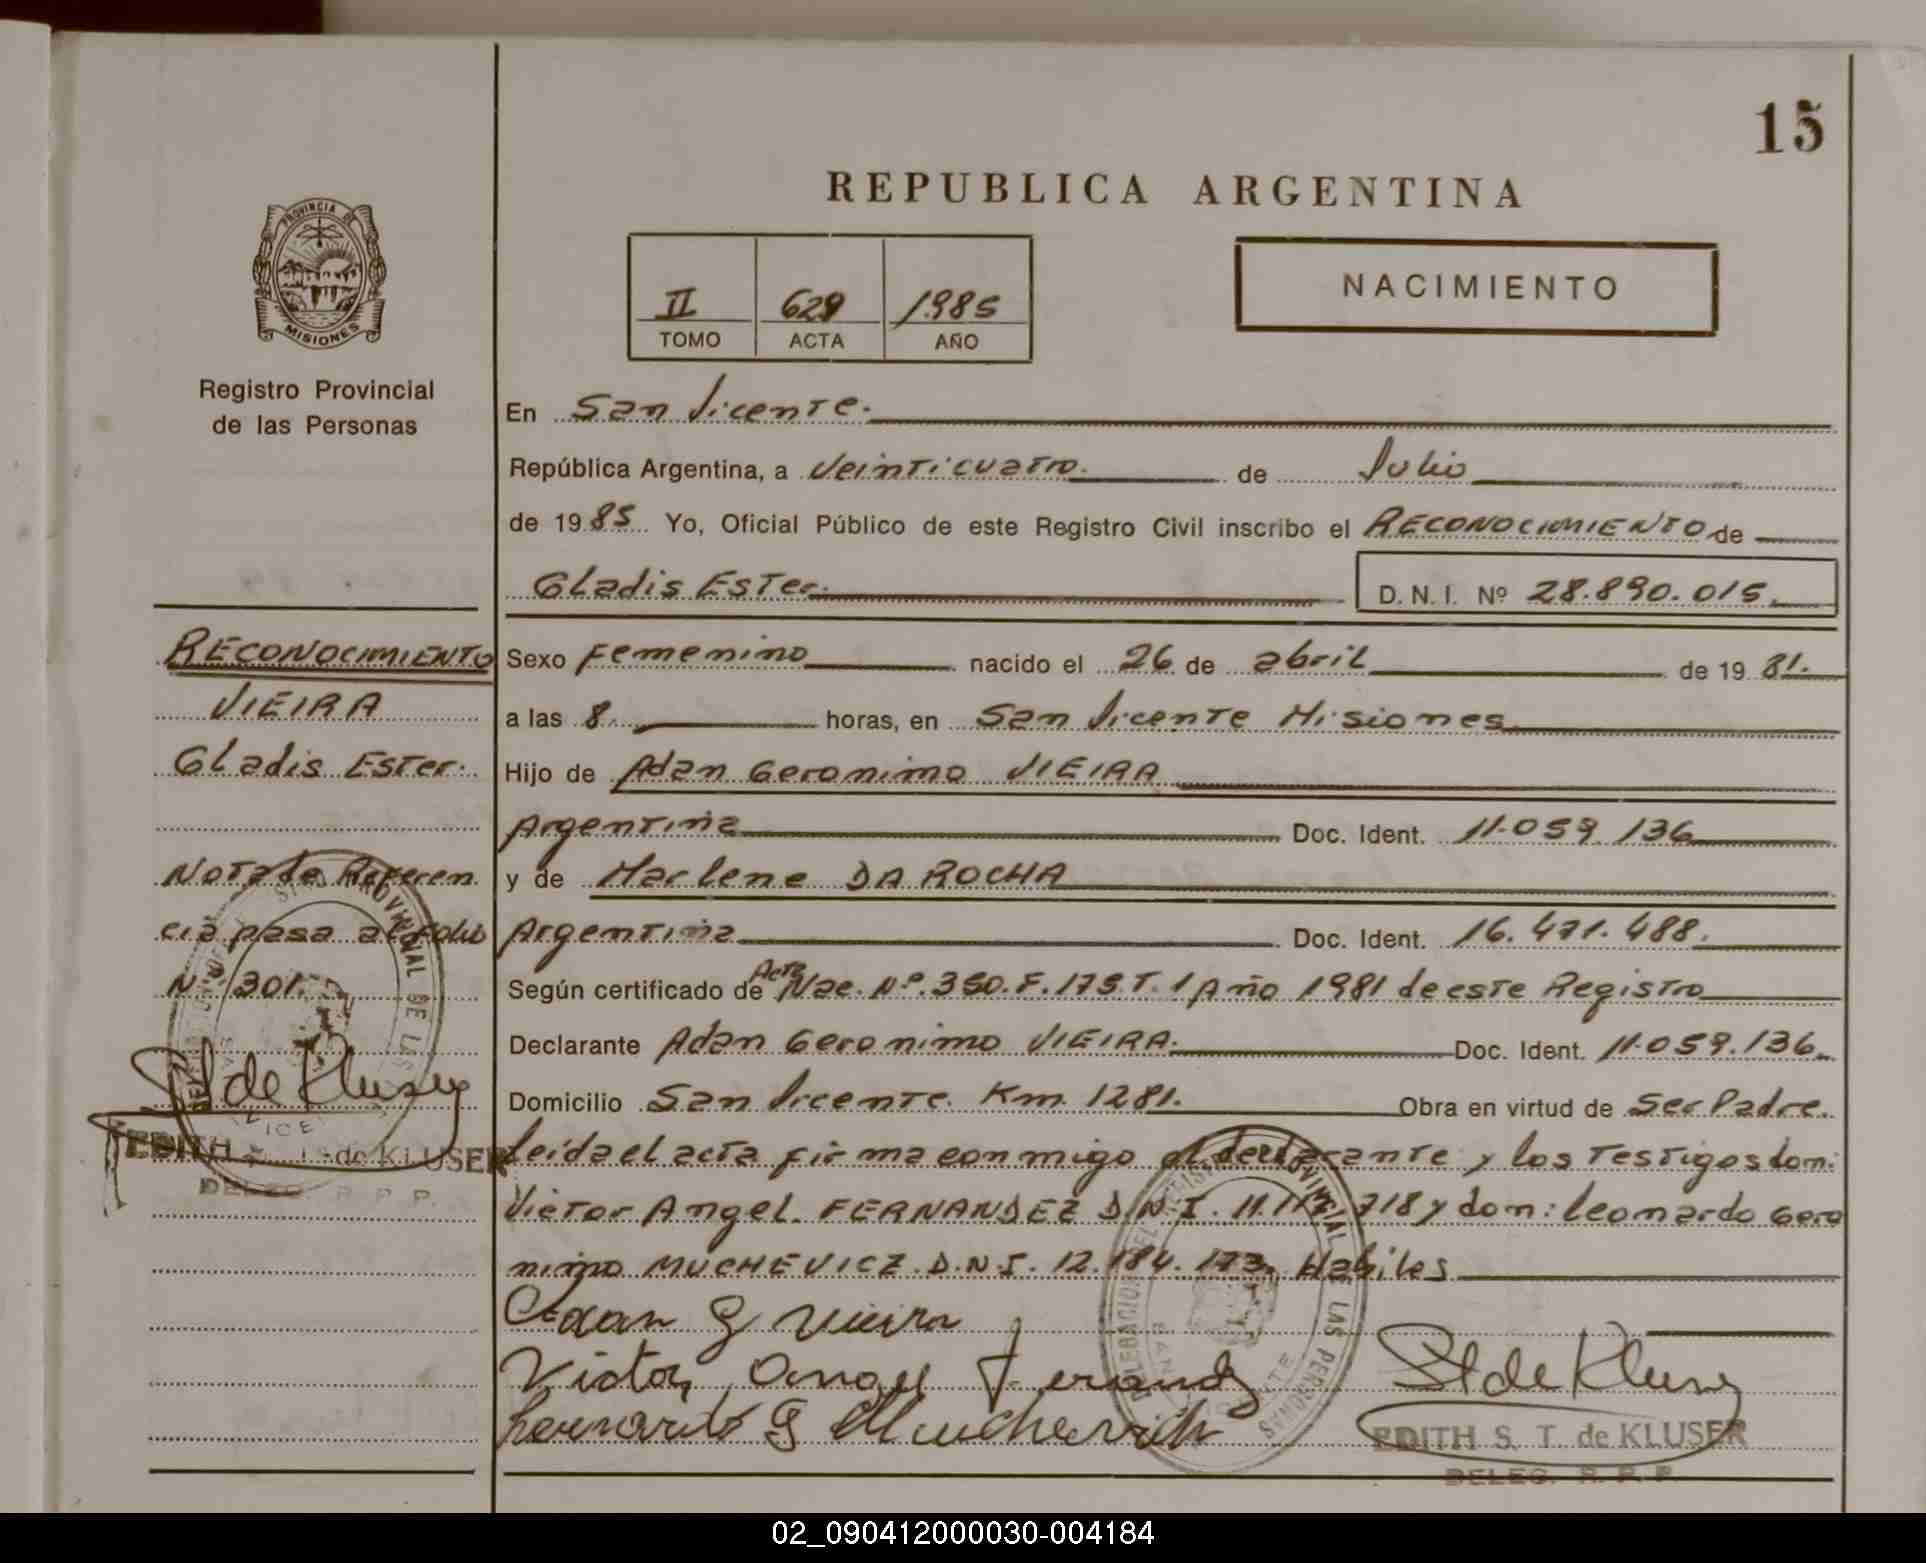 15
REPUBLICA ARGENTINA
PROVINCIA DE
MISIONES
II 629 1985
TOMO ACTA AÑO
NACIMIENTO
Registro Provincial
de las Personas
En San Vicente.
República Argentina, a Veinticuatro. de Julio
de 1985 Yo, Oficial Público de este Registro Civil inscribo el RECONOCIMIENTO de
Gladis Ester. D. N. I. Nº 28.890.015.
RECONOCIMIENTO
VIEIRA
Gladis Ester.
Nota de Referen
cia pasa al folio
Nº 301.
St de Kluser
EDITH de KLUSER
DELEG. R. P. P.
Sexo Femenino nacido el 26 de abril de 1981.
a las 8. horas, en San Vicente Misiones
Hijo de Adan Geronimo VIEIRA
Argentina Doc. Ident. 11.059.136
y de Marlene DA ROCHA
Argentina Doc. Ident. 16.471.488.
Según certificado de Acta Nac. Nº.350.F.175.T.1 Año 1981 de este Registro
Declarante Adan Geronimo VIEIRA. Doc. Ident. 11.059.136
Domicilio San Vicente Km 1281. Obra en virtud de Ser Padre.
leida el acta firma conmigo el declarante y los Testigos don:
Victor Angel. FERNANDEZ D.N.I. 11. 718 y don: Leonardo Gero
nimo MUCHEVICZ. D.N.I. 12.184.173. Habiles
Adan G Vieira
Victor Angel Fernandz
Leonardo G Muchevich
St de Kluser
EDITH S. T. de KLUSER
DELEG. R. P. P.
02_090412000030-004184